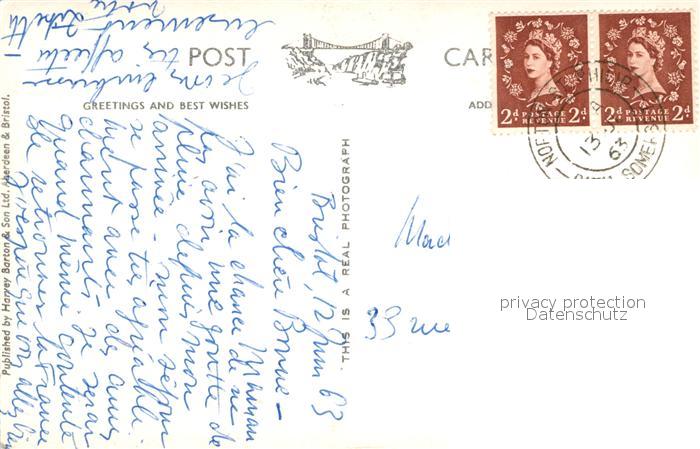 POST CAR
GREETINGS AND BEST WISHES
ADD
Published by Harvey Barton & Son Ltd. Aberdeen & Bristol.
THIS IS A REAL PHOTOGRAPH
2d POSTAGE REVENUE 2d
2d POSTAGE REVENUE 2d
13
63
SOMERS
Bristol, 12 Juin 63
Bien chère Bonne-
Maman
J'ai la chance de ne
pas avoir une goutte de
pluie depuis mon
arrivée - mon séjour
se passe très agréable-
ment avec des amis
charmants. Je serai
quand même contente
de retrouver la France
J'espère que vous allez bien
Je vous embrasse
très affectu-
eusement -
votre
Mad
33 rue
privacy protection
Datenschutz